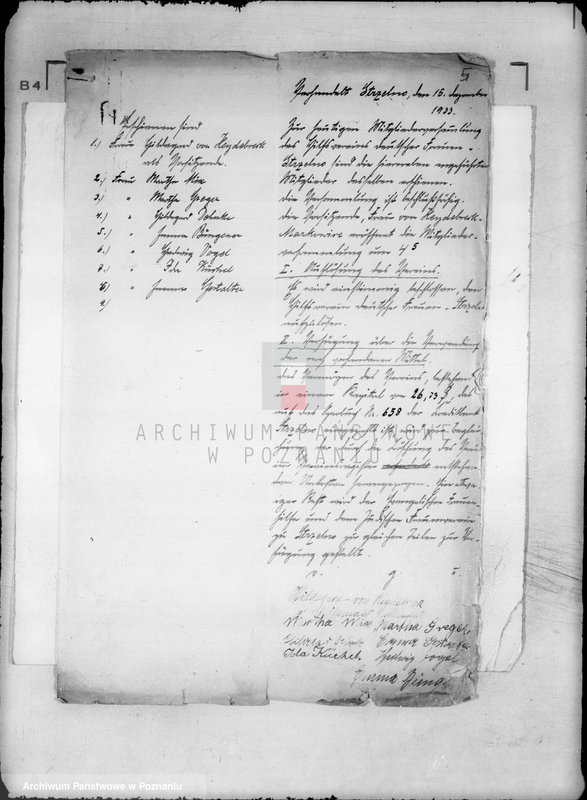 B4
5
Verhandelt Strzelno, den 15. Dezember
1933.
Erschienen sind
1.) Frau Hildegard von Heydebreck
als Vorsitzende.
2.) Frau Martha Wix
3.) " Martha Gregel
4.) " Hildegard
5.) " Herma
6.) " Hedwig Vogel
7.) " Ida Küchel
8.) " Emma
9.)
Zur heutigen Mitgliederversammlung
des Hilfsvereins deutscher Frauen -
Strzelno sind die hierneben angeführten
Mitglieder desselben erschienen.
Die Versammlung ist beschlußfähig.
Die Vorsitzende, Frau von Heydebreck-
Markowice eröffnet die Mitglieder-
versammlung um 4 5
I. Auflösung des Vereins.
Es wird einstimmig beschlossen, den
Hilfsverein deutscher Frauen - Strzelno
aufzulösen.
II. Verfügung über die Verwendung
der noch vorhandenen Mittel.
Das Vermögen des Vereins, bestehend
in einem Kapital von 26,73 , das
auf das Sparbuch N. 658 der Kreditbank
Strzelno eingezahlt ist, wird zur Beglei-
chung der durch die Löschung des Vereins
im Vereinsregister entstehen-
den Unkosten herangezogen. Der
Rest wird der Evangelischen Frauen-
hilfe und dem Jüdischen Frauenverein
zu Strzelno zu gleichen Teilen zur Ver-
fügung gestellt.
v. g. u.
Hildegard von Heydebreck
Martha Wix Martha Gregel
Ida Küchel. Hedwig Vogel
Herma
ARCHIWUM PAŃSTWOWE
W POZNANIU
Archiwum Państwowe w Poznaniu